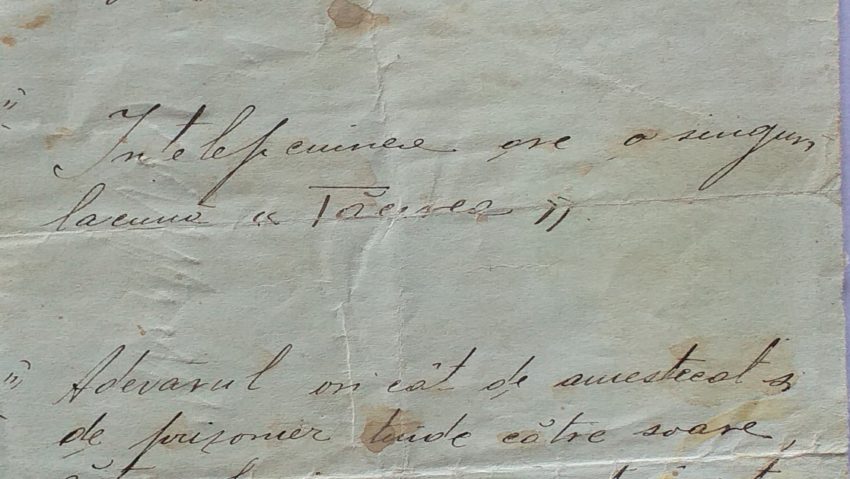 Intelepciunea are o singura
lacună „ Tăcerea "
Adevărul ori cât de amestecat și
de prizonier tinde către soare,